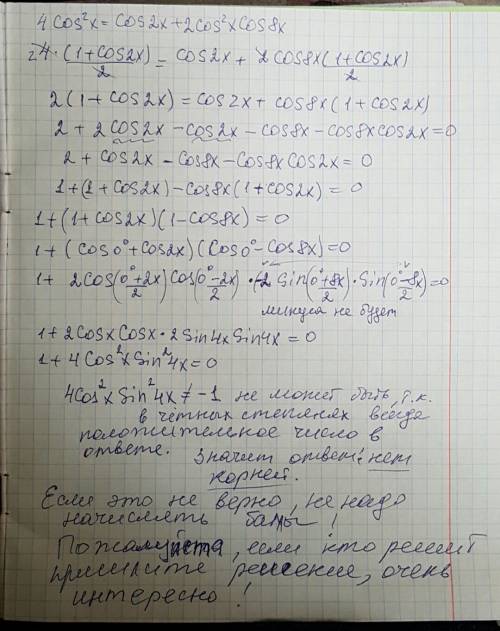 4cos²x = cos2x + 2cos²x cos8x
2 4·(1+cos2x)/2 = cos2x + 2cos8x(1+cos2x)/2
2(1+cos2x) = cos2x + cos8x(1+cos2x)
2 + 2cos2x - cos2x - cos8x - cos8x cos2x = 0
2 + cos2x - cos8x - cos8x cos2x = 0
1+(1+cos2x) - cos8x(1+cos2x) = 0
1+(1+cos2x)(1-cos8x) = 0
1+(cos0°+cos2x)(cos0°-cos8x)=0
1+ 2cos(0°+2x)/2 cos(0°-2x)/2 · (-2 sin(0°+8x)/2 · sin(0°-8x)/2 = 0
минуса не будет
1+2cosx cosx · 2sin4x sin4x = 0
1+4cos²x sin²4x = 0
4cos²x sin²4x ≠ -1 не может быть, т.к.
в чётных степенях всегда
положительное число в
ответе. Значит ответ: нет
корней.
Если это не верно, не надо
начислять балы!
Пожалуйста, если кто решит
пришлите решение, очень
интересно!